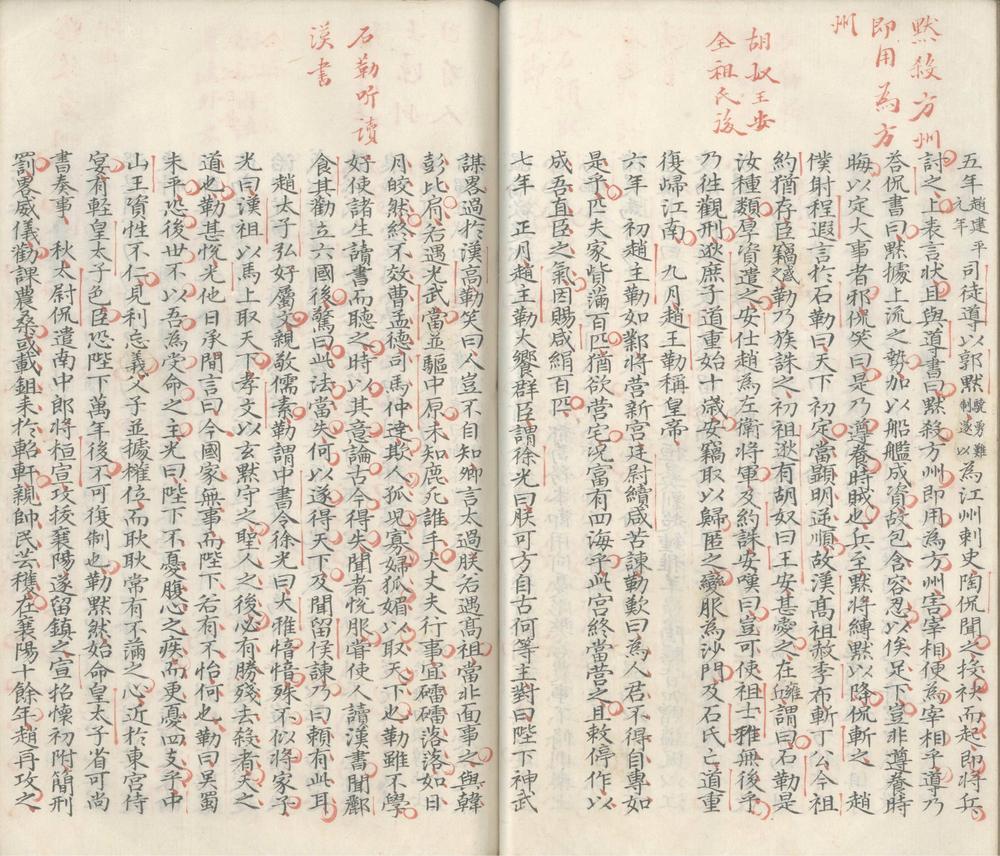 默殺方州
即用為方
州
胡奴王安
全祖氏後
五年趙建平元年司徒導以郭默驍勇難制遂以為江州刺史陶侃聞之投袂而起即將兵
討之上表言狀且與導書曰默殺方州即用為方州害宰相便為宰相乎導乃
答侃書曰默據上流之勢加以船艦成資故包含容忍以俟足下豈非遵養時
晦以定大事者邪侃笑曰是乃遵養時賊也兵至默將縛默以降侃斬之 趙
僕射程遐言於石勒曰天下初定當顯明逆順故漢高祖赦季布斬丁公今祖
約猶存臣竊惑勒乃族誅之初祖逖有胡奴曰王安甚愛之在雍謂曰石勒是
汝種類厚資遣之安仕趙為左衛將軍及約誅安嘆曰豈可使祖士雅無後乎
乃徃觀刑逖庶子道重始十歲安竊取以歸匿之變服為沙門及石氏亡道重
復歸江南 九月趙王勒稱皇帝
六年 初趙主勒如鄴將营新宮廷尉續咸苦諫勒歎曰為人君不得自專如
是乎匹夫家貲滿百匹猶欲营宅况富有四海乎此宮終當营之且敕停作以
成吾直臣之氣因賜咸絹百匹
七年 正月趙主勒大饗群臣謂徐光曰朕可方自古何等主對曰陛下神武
石勒听讀
漢書
謀畧過於漢高勒笑曰人豈不自知卿言太過朕若遇高祖當北面事之與韓
彭比肩若遇光武當並驅中原未知鹿死誰手大丈夫行事宜礌礌落落如日
月皎然終不效曹孟德司馬仲達欺人孤児寡婦狐媚以取天下也勒雖不學
好使諸生讀書而聽之時以其意論古今得失聞者悅服甞使人讀漢書聞酈
食其勸立六國後驚曰此法當失何以遂得天下及聞留侯諫乃曰賴有此耳
趙太子弘好屬文親敬儒素勒謂中書令徐光曰大雅愔愔殊不似將家子
光曰漢祖以馬上取天下孝文以玄默守之聖人之後必有勝殘去殺者天之
道也勒甚悅光他日承間言曰今國家無事而陛下若有不怡何也勒曰吳蜀
未平恐後世不以吾為受命之主光曰陛下不憂腹心之疾而更憂四支乎中
山王資性不仁見利忘義父子並據權位而耿耿常有不滿之心近於東宮侍
宴有輕皇太子色臣恐陛下萬年後不可復制也勒默然始命皇太子省可尚
書奏事 秋太尉侃遣南中郎將桓宣攻拔襄陽遂留鎮之宣招懷初附簡刑
罰畧威儀勸課農桑或載鉏耒於軺軒親帥民芸穫在襄陽十餘年趙再攻之